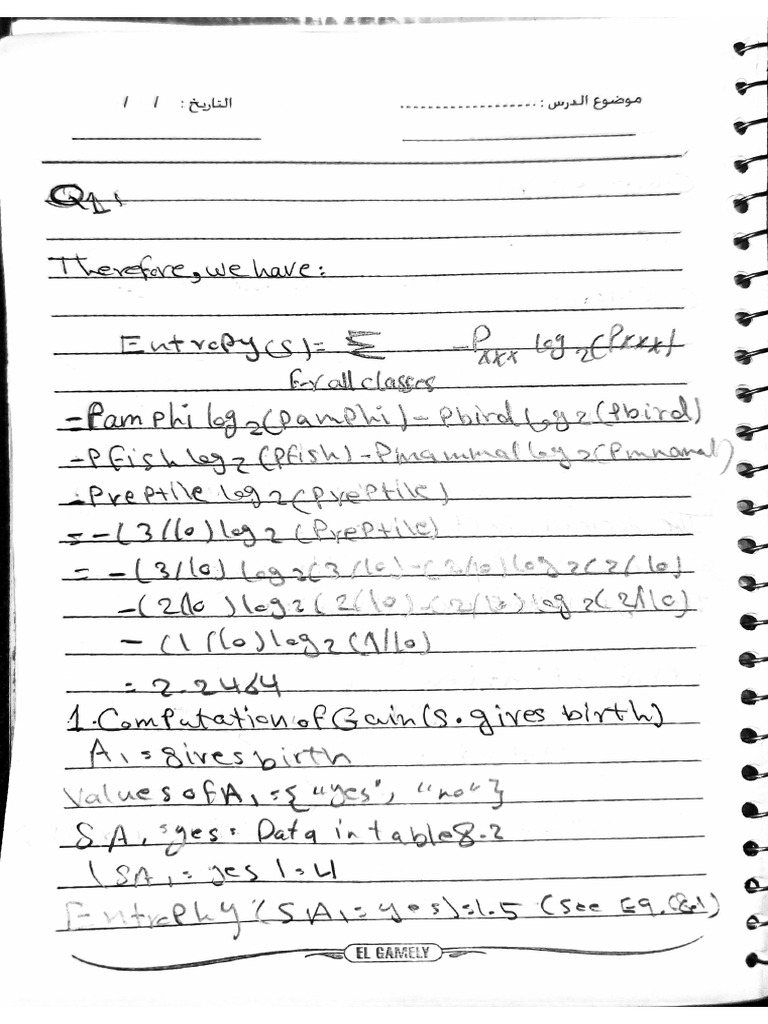 موضوع الدرس : ................... التاريخ : / /
Q1,
Therefore, we have:
Entropy(S) = Σ -Pxxx log2(Pxxx)
For all classes
= Pamphi log2(Pamphi) - Pbird log2(Pbird)
- Pfish log2(Pfish) - Pmammal log2(Pmnamal)
- Preptile log2(Preptile)
= -(3/10) log2(Preptile)
= -(3/10) log2(3/10) - (2/10) log2(2/10)
-(2/10) log2(2/10) - (2/10) log2(2/10)
- (1/10) log2(1/10)
= 2.2464
1. Computation of Gain(S. gives birth)
A1 = gives birth
Values of A1 = {"yes", "no"}
SA1 = yes = Data in table 8.2
|SA1 = yes| = 4
Entrophy (SA1 = yes) = 1.5 (See Eq. (8.1)
EL GAMELY